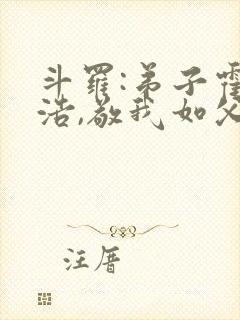 斗罗:弟子霍
浩,敬我如父
汪厝